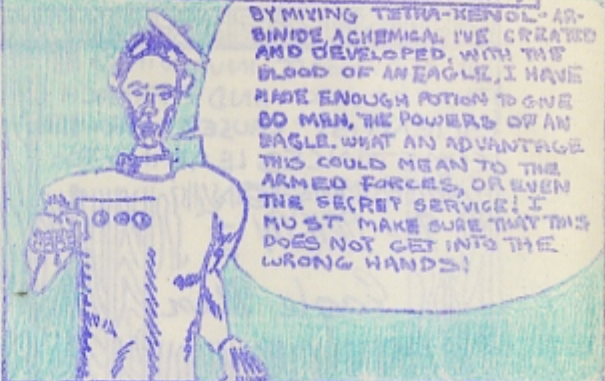 BY MIXING TETRA-KENOL-AR-
BINIDE, A CHEMICAL I'VE CREATED
AND DEVELOPED, WITH THE
BLOOD OF AN EAGLE, I HAVE
MADE ENOUGH POTION TO GIVE
80 MEN, THE POWERS OF AN
EAGLE. WHAT AN ADVANTAGE
THIS COULD MEAN TO THE
ARMED FORCES, OR EVEN
THE SECRET SERVICE! I
MUST MAKE SURE THAT THIS
DOES NOT GET INTO THE
WRONG HANDS!